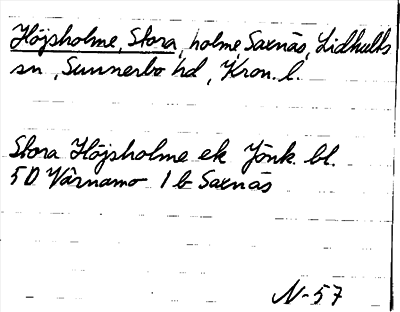 Höjsholme, Stora, holme, Saxnäs, Lidhults
sn, Sunnerbo hd, Kron. l.
Stora Höjsholme ek Jönk. bl.
5D Värnamo 1 b Saxnäs
N-57